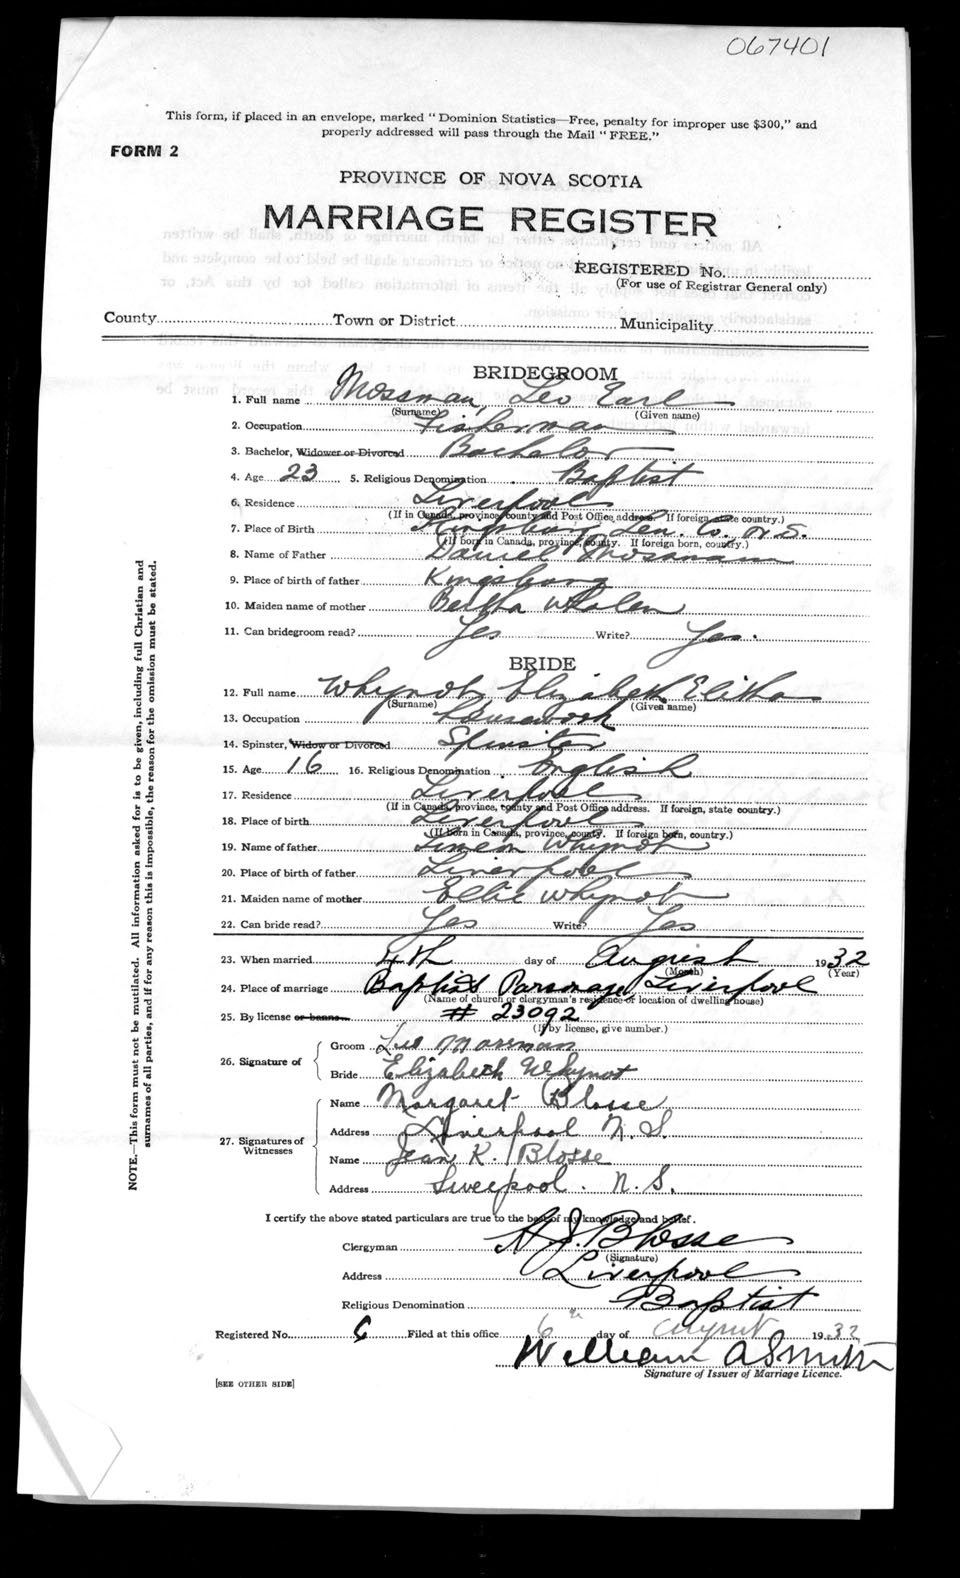 067401
This form, if placed in an envelope, marked "Dominion Statistics—Free, penalty for improper use $300," and
properly addressed will pass through the Mail "FREE."
FORM 2
PROVINCE OF NOVA SCOTIA
MARRIAGE REGISTER
REGISTERED No.
(For use of Registrar General only)
County Town or District Municipality
BRIDEGROOM
1. Full name Mossman, Leo Earl
(Surname) (Given name)
2. Occupation Fisherman
3. Bachelor, Widower or Divorced Bachelor
4. Age 23 5. Religious Denomination Baptist
6. Residence Liverpool
(If in Canada, province, county and Post Office address. If foreign, state country.)
7. Place of Birth Kingsburg Lun. Co. N.S.
(If born in Canada, province, county. If foreign born, country.)
8. Name of Father Daniel Mossman
9. Place of birth of father Kingsburg
10. Maiden name of mother Bertha Whalen
11. Can bridegroom read? Yes Write? Yes.
BRIDE
12. Full name Whynot, Elizabeth Elitha
(Surname) (Given name)
13. Occupation Housework
14. Spinster, Widow or Divorced Spinster
15. Age 16 16. Religious Denomination English
17. Residence Liverpool
(If in Canada, province, county and Post Office address. If foreign, state country.)
18. Place of birth Liverpool
(If born in Canada, province, county. If foreign born, country.)
19. Name of father Simeon Whynot
20. Place of birth of father Liverpool
21. Maiden name of mother Ellie Whynot
22. Can bride read? Yes Write? Yes
23. When married 4th day of August 1932
(Month) (Year)
24. Place of marriage Baptist Parsonage Liverpool
(Name of church or clergyman's residence or location of dwelling house)
25. By license or banns # 23092
(If by license, give number.)
26. Signature of Groom Leo Mossman
Bride Elizabeth Whynot
27. Signatures of Witnesses Name Margaret Blosse
Address Liverpool N.S.
Name Jean K. Blosse
Address Liverpool. N.S.
I certify the above stated particulars are true to the best of my knowledge and belief.
Clergyman H J. Blosse
(Signature)
Address Liverpool
Religious Denomination Baptist
Registered No. 6 Filed at this office 6th day of August 1932
William A Smith
Signature of Issuer of Marriage Licence.
[SEE OTHER SIDE]
NOTE.—This form must not be mutilated. All information asked for is to be given, including full Christian and
surnames of all parties, and if for any reason this is impossible, the reason for the omission must be stated.